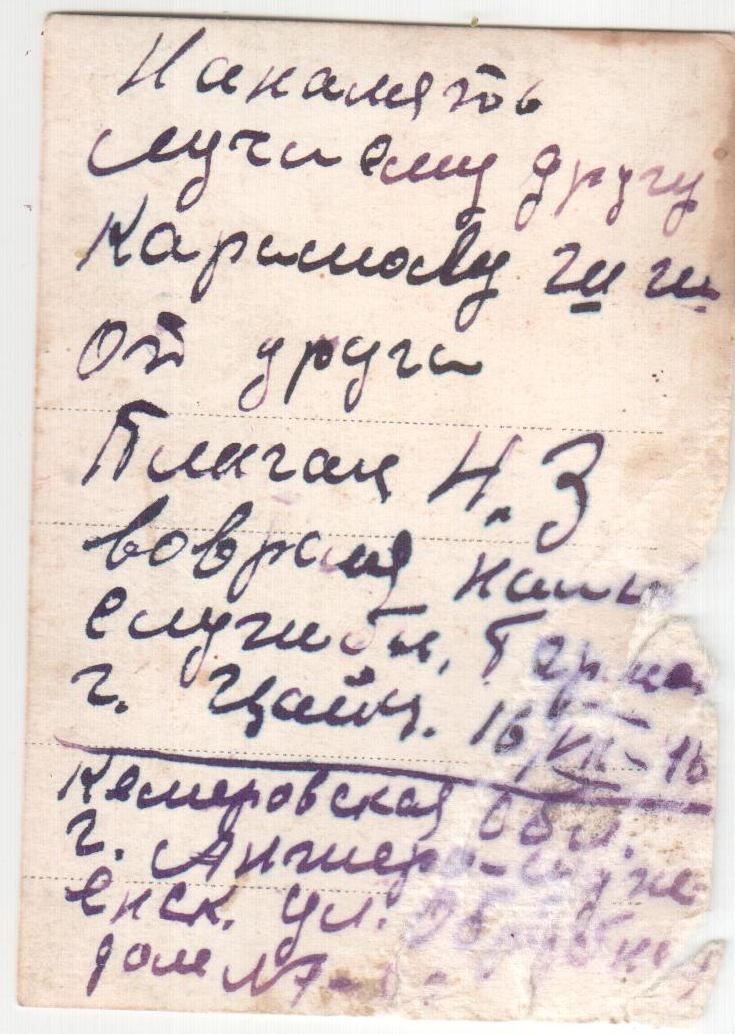 Нанамять
лучшему другу
Каримову Ш Ш
от друга
Плигац Н.З
вовремя наш
службы, Герма
г. Цайц. 16/VII-46
Кемеровская обл.
г. Анжеро-Судже
енск. ул.
дом N7-